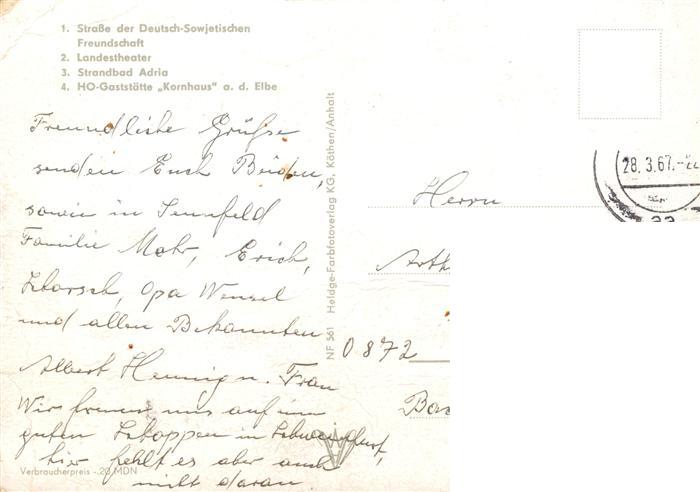 1. Straße der Deutsch-Sowjetischen
Freundschaft
2. Landestheater
3. Strandbad Adria
4. HO-Gaststätte „Kornhaus" a. d. Elbe
Freundliche Grüße
senden Euch Beiden,
sowie in Sennfeld
Familie Mohr, Erich,
Opa Wensel
und allen Bekannten
Albert Hennig u. Frau
Wir freuen uns auf ein
guten Schoppen in Schweinfurt,
hier fehlt es aber auch
nicht daran
Verbraucherpreis -.20 MDN
NF 561 Heldge-Farbfotoverlag KG, Köthen/Anhalt
28. 3. 67.
Herrn
Arth
0872